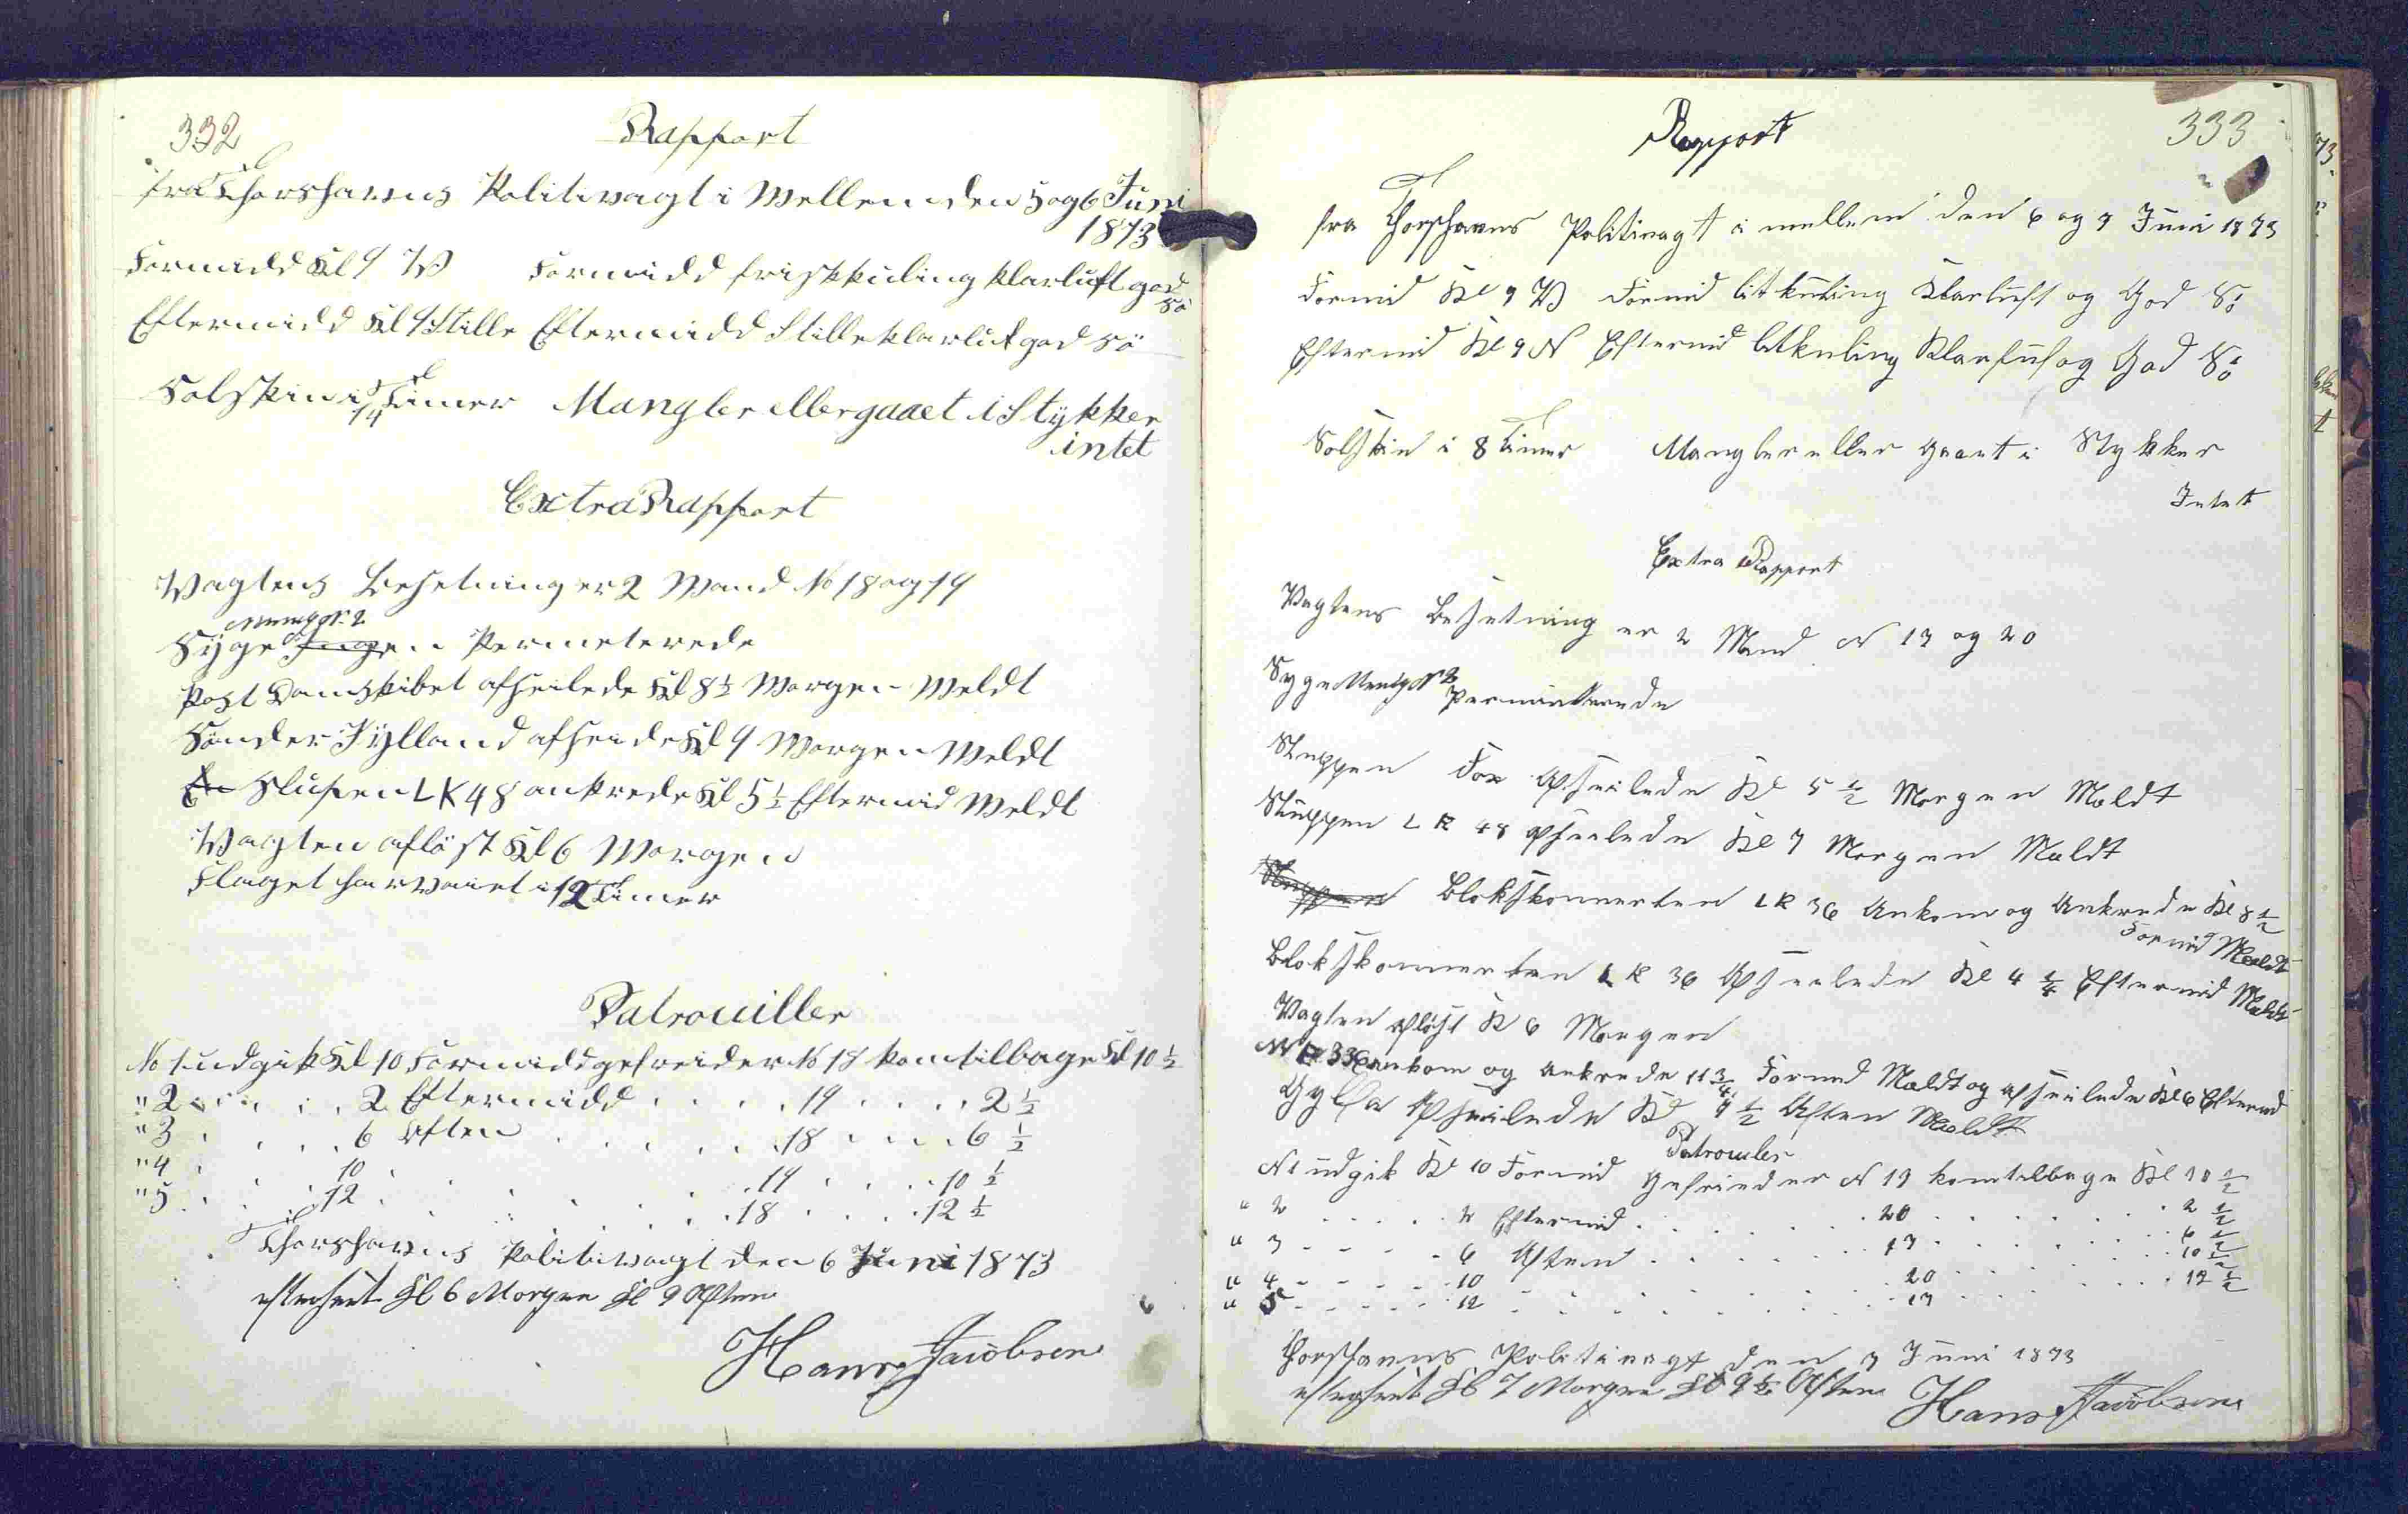 332
Rapport
fra Thorshavns Politivagt i Mellem den 5 og 6 Juni
1873
Formidd Kl 9 W Formidd friskkuling klarluft god
Sö
Eftermidd Kl 9 Stille Eftermidd Stille klarluft god Sö
Solskin i 14 Timer Mangler eller gaaet i Stykker
intet
Extra Rapport
Vagtens Besetning er 2 Mand No 18 og 19
Syge Ingen Permeterede
Post Damskibet afseilede Kl 8½ Morgen Meldt
Sönder Jylland afseide Kl 9 Morgen Meldt
En Slupen LK 48 ankrede Kl 5½ Eftermid Meldt
Vagten aflöst Kl 6 Morgen
Flaget har vaiet i 12 Timer
Patrouiller
No 1 udgik Kl 10 Formidd gefreider No 18 kom tilbage Kl 10½
" 2 . . . . 2 Eftermidd . . . . 19 . . . . 2½
" 3 . . . . 6 Aften . . . . 18 . . . . 6½
" 4 . . . . 10 . . . . 19 . . . . 10½
" 5 . . . . 12 . . . . 18 . . . . 12½
Thorshavns Politivagt den 6 Juni 1873
efterseet Kl 6 Morgen Kl 9 Aften
Hans Jacobsen
333
Rapport
fra Thorshavns Politivagt i mellem den 6 og 7 Juni 1873
Formid Kl 9 W Formid litkuling Klarluft og God Sö
Eftermid Kl 9 N Eftermid litkuling Klarluft og God Sö
Solskin i 8 Timer Mangler eller Gaaet i Stykker
Intet
Extra Rapport
Vagtens Besetning er 2 Mand N 17 og 20
Syge Permitterede
Sluppen Fox Afseilede Kl 5½ Morgen Meldt
Sluppen LK 48 afseilede Kl 7 Morgen Meldt
Sluppen Blokskonnerten LK 36 Ankom og Ankrede Kl 8½
Formid Meldt
Blokskonnerten LK 36 Afseilede Kl 4¼ Eftermid Meldt
Vagten aflöst Kl 6 Morgen
ankom og ankrede 11¾ Formid Meldt og afseilede Kl 6 Eftermid
Afseilede Kl 9½ Aften Meldt
Patrouler
N 1 udgik Kl 10 Formid Gefreider N 17 kom tilbage Kl 10½
" 2 . . . . 2 Eftermid . . . . 20 . . . . 2½
" 3 . . . . 6 Aften . . . . 17 . . . . 6½
" 4 . . . . 10 . . . . 20 . . . . 10½
" 5 . . . . 12 . . . . 17 . . . . 12½
Thorshavns Politivagt den 7 Juni 1873
efterseet Kl 7 Morgen Kl 9½ Aften
Hans Jacobsen